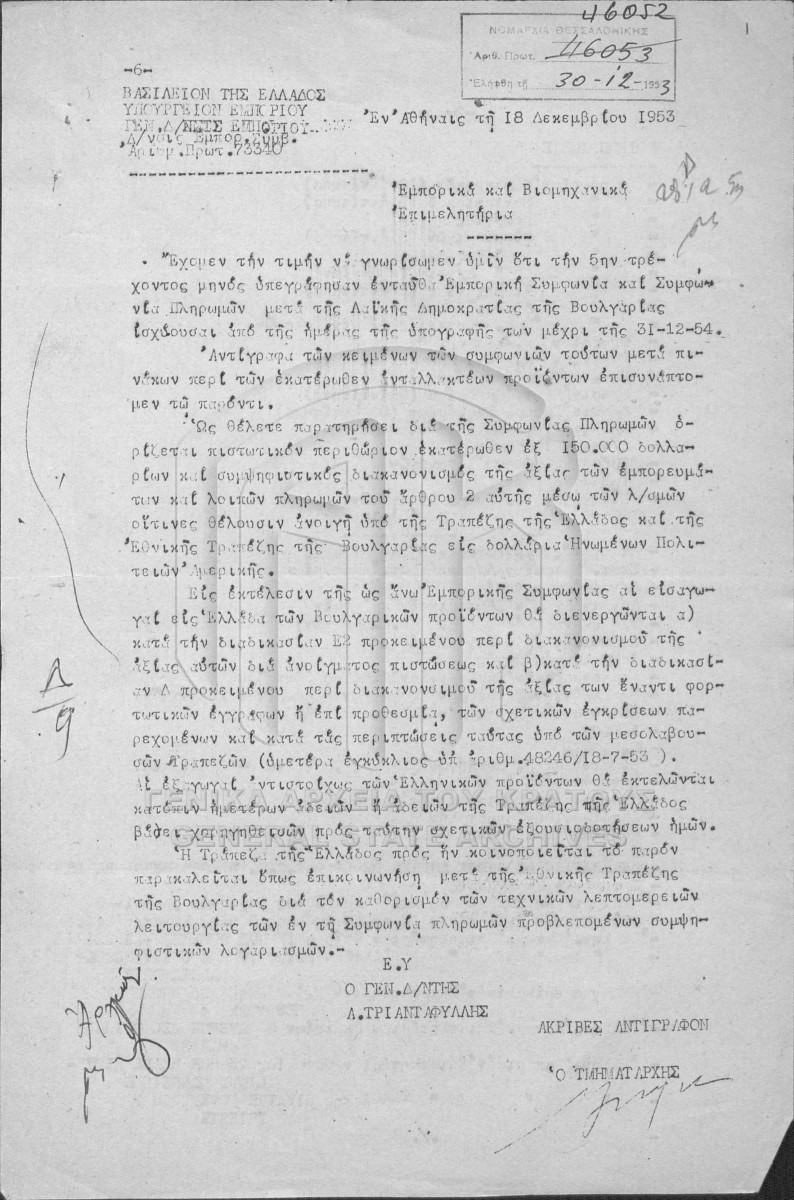 46052
ΝΟΜΑΡΧΙΑ ΘΕΣΣΑΛΟΝΙΚΗΣ
Ἀριθ. Πρωτ. 46053
Ἐλήφθη τῇ 30-12-1953
-6-
ΒΑΣΙΛΕΙΟΝ ΤΗΣ ΕΛΛΑΔΟΣ
ΥΠΟΥΡΓΕΙΟΝ ΕΜΠΟΡΙΟΥ
ΓΕΝ.Δ/ΝΣΙΣ ΕΜΠΟΡΙΟΥ
Δ/νσις Ἐμπορ.Συμβ.
Ἀριθμ.Πρωτ.73340
Ἐν Ἀθήναις τῇ 18 Δεκεμβρίου 1953
Ἐμπορικά καί Βιομηχανικά
Ἐπιμελητήρια
Ἔχομεν τήν τιμήν νά γνωρίσωμεν ὑμῖν ὅτι τήν 5ην τρέ-
χοντος μηνός ὑπεγράφησαν ἐνταῦθα Ἐμπορική Συμφωνία καί Συμφω-
νία Πληρωμῶν μετά τῆς Λαϊκῆς Δημοκρατίας τῆς Βουλγαρίας
ἰσχύουσαι ἀπό τῆς ἡμέρας τῆς ὑπογραφῆς των μέχρι τῆς 31-12-54.
Ἀντίγραφα τῶν κειμένων τῶν συμφωνιῶν τούτων μετά πι-
νάκων περί τῶν ἑκατέρωθεν ἀνταλλακτέων προϊόντων ἐπισυνάπτο-
μεν τῷ παρόντι.
Ὡς θέλετε παρατηρήσει διά τῆς Συμφωνίας Πληρωμῶν ὁ-
ρίζεται πιστωτικόν περιθώριον ἑκατέρωθεν ἐξ 150.000 δολλα-
ρίων καί συμψηφιστικός διακανονισμός τῆς ἀξίας τῶν ἐμπορευμά-
των καί λοιπῶν πληρωμῶν τοῦ ἄρθρου 2 αὐτῆς μέσω τῶν λ/σμῶν
οἵτινες θέλουσιν ἀνοιγῆ ὑπό τῆς Τραπέζης τῆς Ἑλλάδος καί τῆς
Ἐθνικῆς Τραπέζης τῆς Βουλγαρίας εἰς δολλάρια Ἡνωμένων Πολι-
τειῶν Ἀμερικῆς.
Εἰς ἐκτέλεσιν τῆς ὡς ἄνω Ἐμπορικῆς Συμφωνίας αἱ εἰσαγω-
γαί εἰς Ἑλλάδα τῶν Βουλγαρικῶν προϊόντων θά διενεργῶνται α)
κατά τήν διαδικασίαν Ε2 προκειμένου περί διακανονισμοῦ τῆς
ἀξίας αὐτῶν διά ἀνοίγματος πιστώσεως καί β)κατά τήν διαδικασί-
αν Δ προκειμένου περί διακανονσιμοῦ τῆς ἀξίας των ἔναντι φορ-
τωτικῶν ἐγγράφων ἤ ἐπί προθεσμία, τῶν σχετικῶν ἐγκρίσεων πα-
ρεχομένων καί κατά τάς περιπτώσεις ταύτας ὑπό τῶν μεσολαβου-
σῶν Τραπεζῶν (ὑμετέρα ἐγκύκλιος ὑπ ἀριθμ.48246/18-7-53 ).
Αἱ ἐξαγωγαί ἀντιστοίχως τῶν Ἑλληνικῶν προϊόντων θά ἐκτελῶνται
κατόπιν ἡμετέρων ἀδειῶν ἤ ἀδειῶν τῆς Τραπέζης τῆς Ἑλλάδος
βάσει χορηγηθεισῶν πρός ταύτην σχετικῶν ἐξουσιοδοτήσεων ἡμῶν.
Ἡ Τράπεζα τῆς Ἑλλάδος πρός ἥν κοινοποιεῖται τό παρόν
παρακαλεῖται ὅπως ἐπικοινωνήση μετά τῆς Ἐθνικῆς Τραπέζης
τῆς Βουλγαρίας διά τόν καθορισμόν τῶν τεχνικῶν λεπτομερειῶν
λειτουργίας τῶν ἐν τῇ Συμφωνία πληρωμῶν προβλεπομένων συμψη-
φιστικῶν λογαριασμῶν.-
Ε.Υ
Ο ΓΕΝ.Δ/ΝΤΗΣ
Α.ΤΡΙΑΝΤΑΦΥΛΛΗΣ
ΑΚΡΙΒΕΣ ΑΝΤΙΓΡΑΦΟΝ
Ὁ ΤΜΗΜΑΤΑΡΧΗΣ
Δ/9
ΓΕΝΙΚΑ ΑΡΧΕΙΑ ΤΟΥ ΚΡΑΤΟΥΣ
GENERAL STATE ARCHIVES